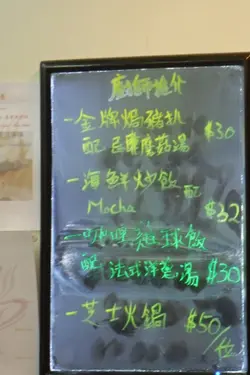 廚師推介
一金牌焗豬扒
配 忌廉蘑菇湯 $30
一海鮮炒飯 配
Mocha $32
一咖喱 飯
配 法式洋葱湯 $30
一芝士火鍋 $50/位